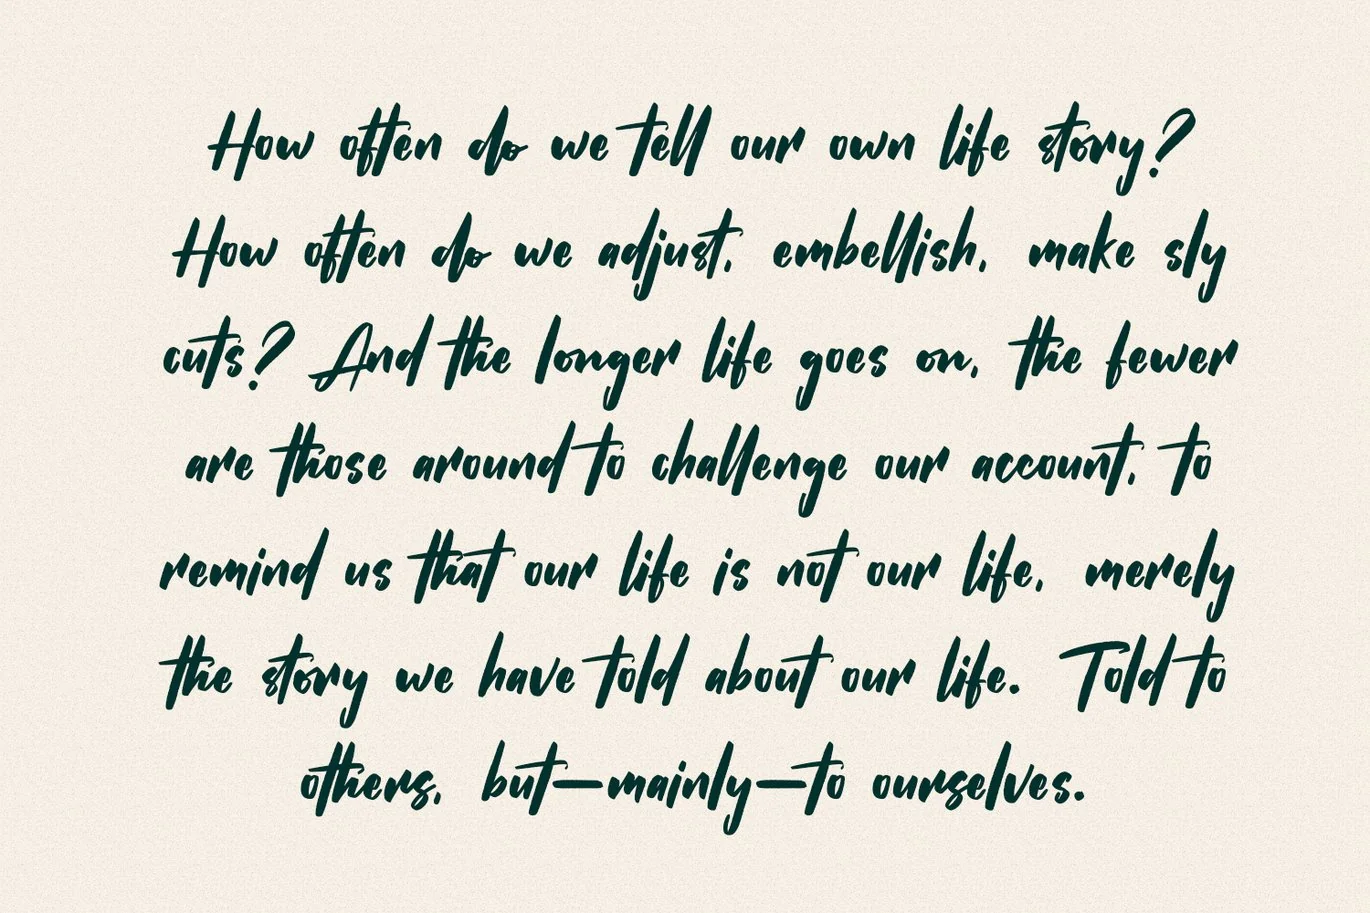 How often do we tell our own life story?
How often do we adjust, embellish, make sly
cuts? And the longer life goes on, the fewer
are those around to challenge our account, to
remind us that our life is not our life, merely
the story we have told about our life. Told to
others, but—mainly—to ourselves.